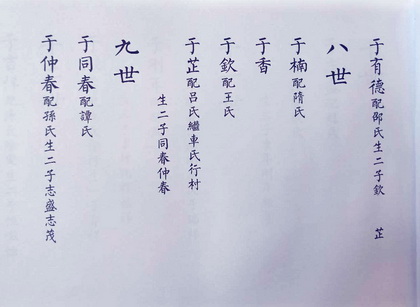 于有德配邵氏生二子欽 芷
八世
于楠配隋氏
于香
于欽配王氏
于芷配呂氏繼車氏行村
生二子同春仲春
九世
于同春配譚氏
于仲春配孫氏生二子志盛志茂